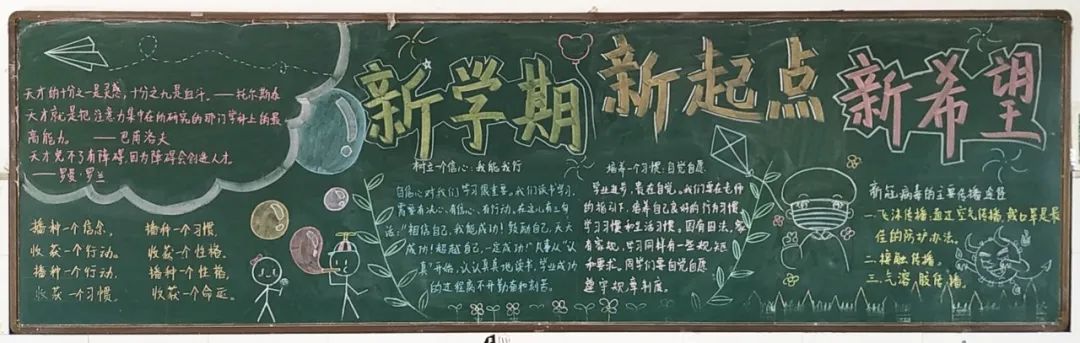 新学期
新起点
新希望
天才的十分之一是灵感，十分之九是血汗。——托尔斯泰
天才就是把注意力集中在所研究的那门学科上的最
高能力。——巴甫洛夫
天才免不了有障碍，因为障碍会创造人才。
——罗曼·罗兰
播种一个信念，
收获一个行动。
播种一个行动，
收获一个习惯。
播种一个习惯，
收获一个性格。
播种一个性格，
收获一个命运。
树立一个信心：我能我行
自信心对我们学习很重要。我们读书学习，
需要有决心、有信心、有行动。在这儿有三句
话：“相信自己，我能成功！鼓励自己，天天
成功！超越自己，一定成功！”凡事从“认
真”开始，认认真真地读书，学业成功
的过程离不开勤奋和刻苦。
培养一个习惯：自觉自愿
学业进步，贵在自觉。我们要在老师
的指引下，培养自己良好的行为习惯、
学习习惯和生活习惯。国有国法，家
有家规，学习同样有一些规矩
和要求。同学们要自觉自愿
遵守规章制度。
新冠病毒的主要传播途径
一、飞沫传播：通过空气传播，戴口罩是最
佳的防护办法。
二、接触传播。
三、气溶胶传播。